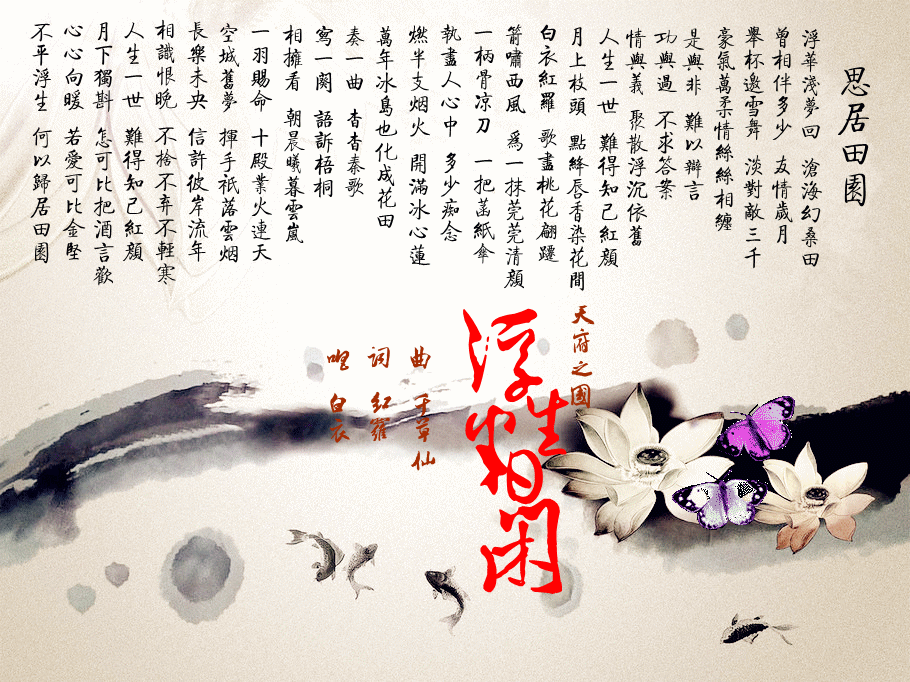 思居田園
浮華淺夢回 滄海幻桑田
曾相伴多少 友情歲月
舉杯邀雪舞 淡對敵三千
豪氣萬柔情絲絲相纏
是與非 難以辯言
功與過 不求答案
情與義 聚散浮沉依舊
人生一世 難得知己紅顏
月上枝頭 點絳唇香染花間
白衣紅羅 歌盡桃花翩躚
箭嘯西風 爲一抹莞莞清顏
一柄骨凉刀 一把菡紙傘
執盡人心中 多少痴念
燃半支烟火 開滿冰心蓮
萬年冰島也化成花田
奏一曲 杳杳秦歌
寫一闋 語訴梧桐
相擁看 朝晨曦暮雲嵐
一羽賜命 十殿業火連天
空城舊夢 揮手祇落雲烟
長樂未央 信許彼岸流年
相識恨晚 不捨不弃不輕寒
人生一世 難得知己紅顏
月下獨斟 怎可比把酒言歡
心心向暖 若愛可比金堅
不平浮生 何以歸居田園
天府之國
浮生半日閑
曲 千草仙
詞 紅羅
唱 白衣